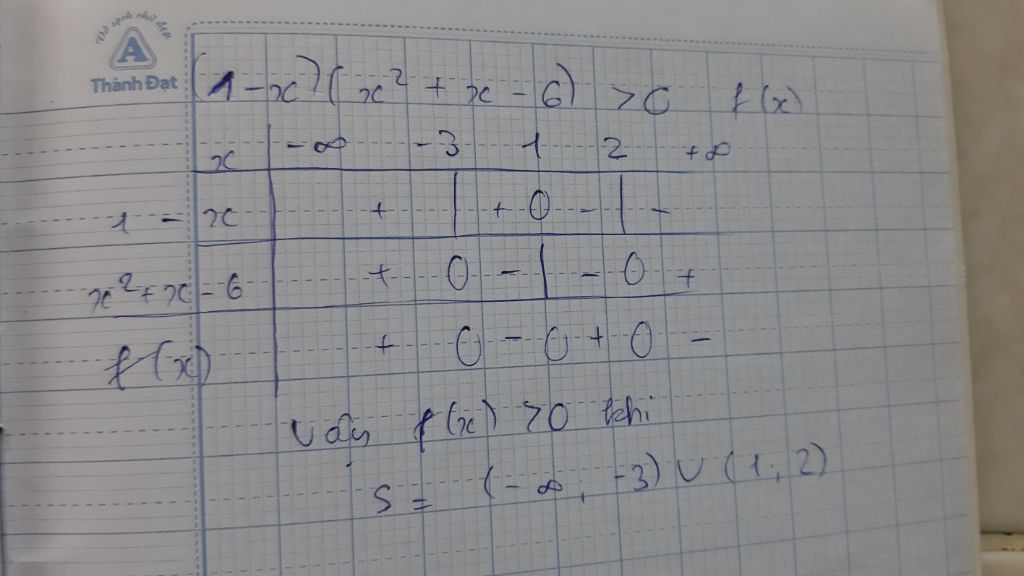 Vở sạch chữ đẹp
A
Thành Đạt
(1-x)(x²+x-6) >0 f(x)
x | -∞ -3 1 2 +∞
1-x | + | + 0 - | -
x²+x-6 | + 0 - | - 0 +
f(x) | + 0 - 0 + 0 -
Vậy f(x) >0 khi
S = (-∞; -3) ∪ (1; 2)